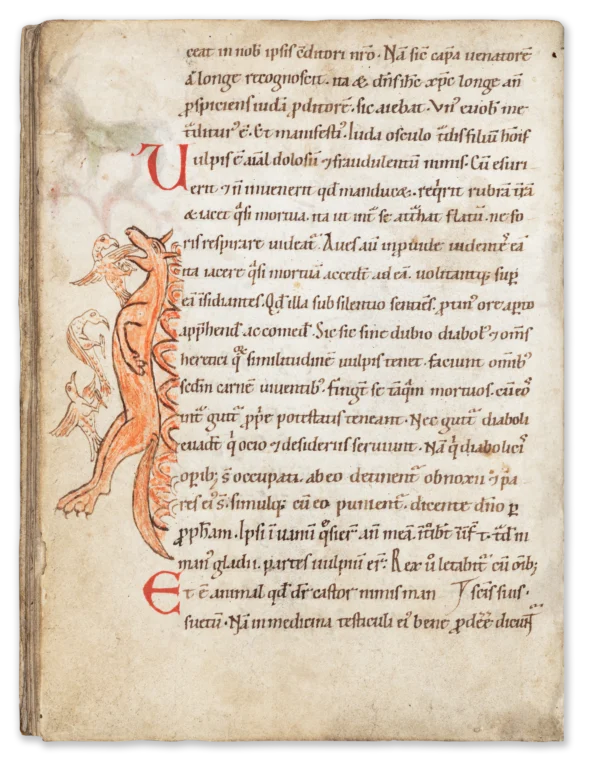 ceat in nob̄ ipsis c̄ditori nr̄o. Nā sic̄ cap̄a uenatorē
a longe recognoscit. ita & dn̄s ihc̄ xp̄c longe an̄
p̱spiciens iudā p̱ditorē. sic aiebat. Vn' ex uob̄ me
t̄diturˀ ē. Et manifestū. Iuda osculo t̄dis filiū hoīs
Uulpis ē aīal dolosū ⁊ fraudulentū nimis. Cū esuri
erit ⁊ n̄ inuenerit qd̄ manducæ. req̄rit rubrā t̄rā
& iacet q̄si mortua. ita ut int̄ se att̄hat flatū. ne fo
ris respirare uideat̄. Aues aū uidentes eā
ita iacere q̄si mortuā accedt̄ ad eā. uolitantq; sup̱
eā īsidiantes. Qd̄ illa sub silentio sentiēs. p̱tin' ore ap̱to
app̱hend̄ ac comed̄. Sic sic sine dubio diabol' ⁊ om̄s
heretici q̄ similitudinē uulpis tenet. faciunt om̄ib'
scdm̄ carnē uiuentib'. fingt̄ se tāq̄m mortuos. cū eo'
int̄ gutt̄ p̱p̱e potestatis teneant. Nec gutt̄ diaboli
euadt̄ q̄ ocio ⁊ desideriis seruiunt. Nā q̄ diabolici
opib; s̄ occupati. ab eo detinent̄ obnoxii ⁊ pa
res ei' s̄. simulq; cū eo punient̄. dicente dn̄o p̱
p̱ph̄am. Ipsi ī uanū q̄sier̄ an̄ meā. īt̄ibt̄ īīf̄ t. t̄dn̄ī
man' gladii. partes uulpiū er̄. Rex ū letabit̄ cū om̄ib;
Et ē animal qd̄ dr̄ castor nimis man scis suis.
suetū. Nā in medicina testiculi ei' bene p̱dēē dicunt̄